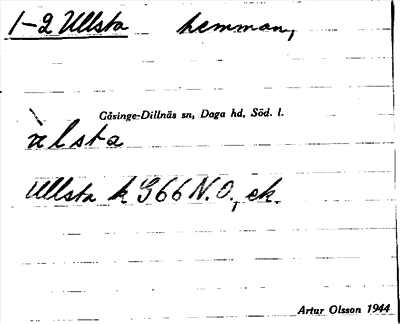 1-2 Ullsta hemman,
Gåsinge-Dillnäs sn, Daga hd, Söd. l.
ùlsta
Ullsta k G66 N.O., ek.
Artur Olsson 1944